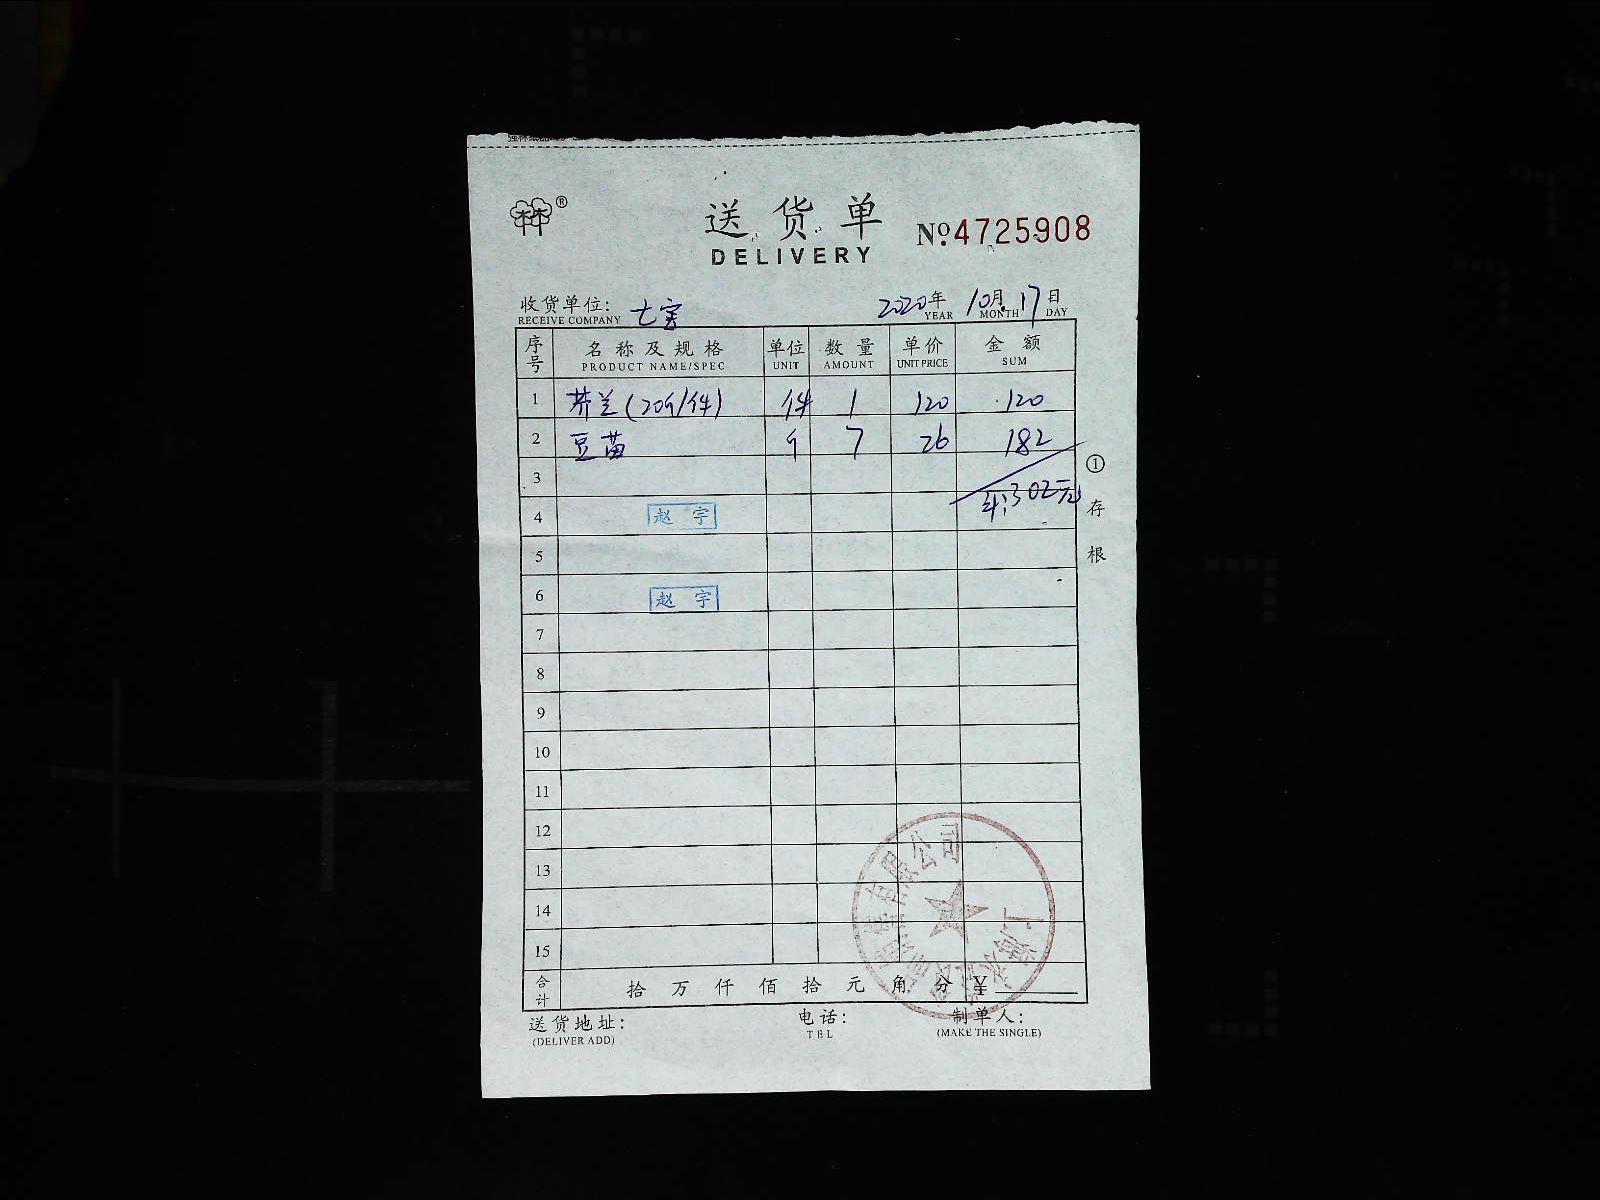 送货单
DELIVERY
No. 4725908
收货单位: 七宝
RECEIVE COMPANY
2020年 10月 17日
YEAR MONTH DAY
序号 名称及规格 单位 数量 单价 金额
PRODUCT NAME/SPEC UNIT AMOUNT UNIT PRICE SUM
1 芥兰(20斤/件) 件 1 120 120
2 豆苗 斤 7 26 182
3
302元
4 赵宇
5
6 赵宇
7
8
9
10
11
12
13
14
15
①存根
有限公司
合计 拾 万 仟 佰 拾 元 角 分 ¥
送货地址: 电话: 制单人:
(DELIVER ADD) TEL (MAKE THE SINGLE)